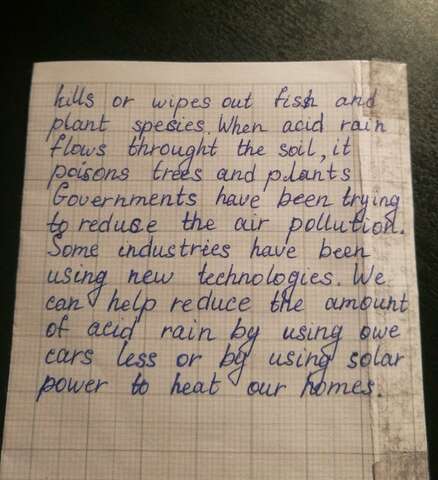 kills or wipes out fish and
plant spesies. When acid rain
flows throught the soil, it
poisons trees and plants
Governments have been trying
to reduse the air pollution.
Some industries have been
using new technologies. We
can help reduce the amount
of acid rain by using owe
cars less or by using solar
power to heat our homes.